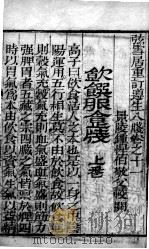 弦雪居重訂遵生八牋卷之十一
景陵鍾惺伯敬父較閱
飲饌服食牋 上卷
高子曰飲食活人之本也是以一身之中陰
陽運用五行相生莫不由於飲食故飲食進
則穀氣充穀氣充則血氣盛血氣盛則筋力
強脾胃者五臟之宗四臟之氣皆稟於脾四
時以胃氣為本由飲食以資氣生氣以益精